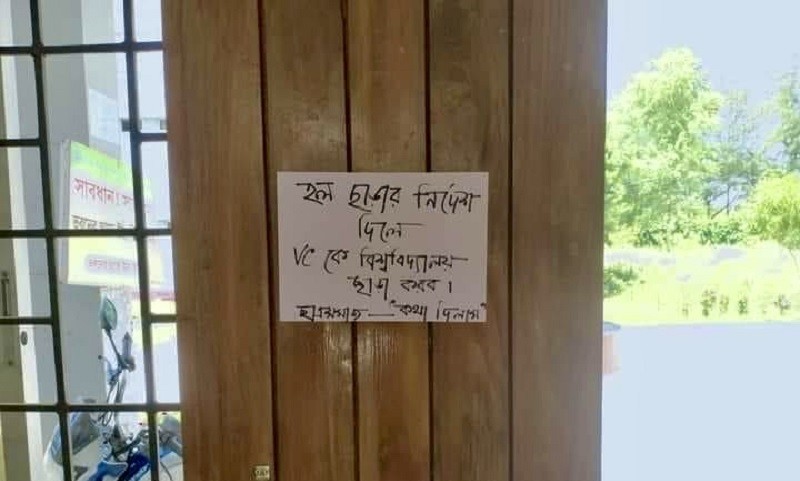 সাবধান!
হল ছাড়ার নির্দেশ
দিলে
VC কে বিশ্ববিদ্যালয়
ছাড়া করব।
ছাত্রসমাজ — "কথা দিলাম"